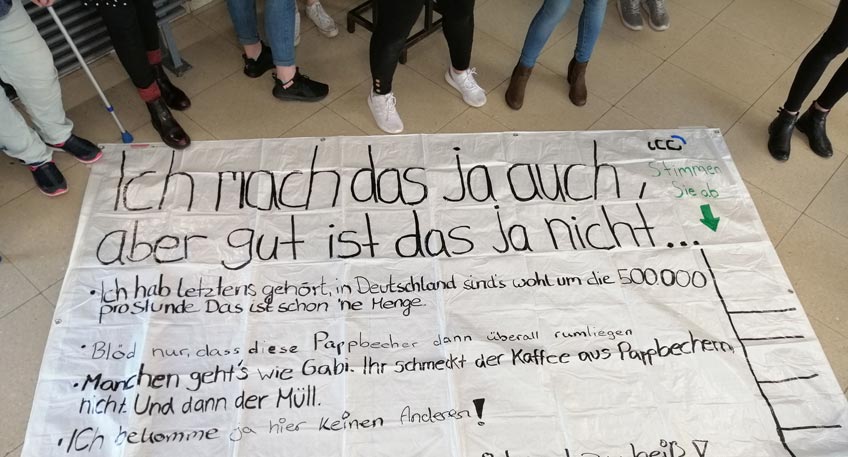 Ich mach das ja auch,
aber gut ist das ja nicht...
Stimmen
Sie ab
• Ich hab letztens gehört, in Deutschland sind's wohl um die 500.000
pro Stunde. Das ist schon 'ne Menge.
• Blöd nur, dass diese Pappbecher dann überall rumliegen
• Manchen geht's wie Gabi. Ihr schmeckt der Kaffee aus Pappbechern
nicht. Und dann der Müll.
• ICh bekomme ja hier keinen Anderen!